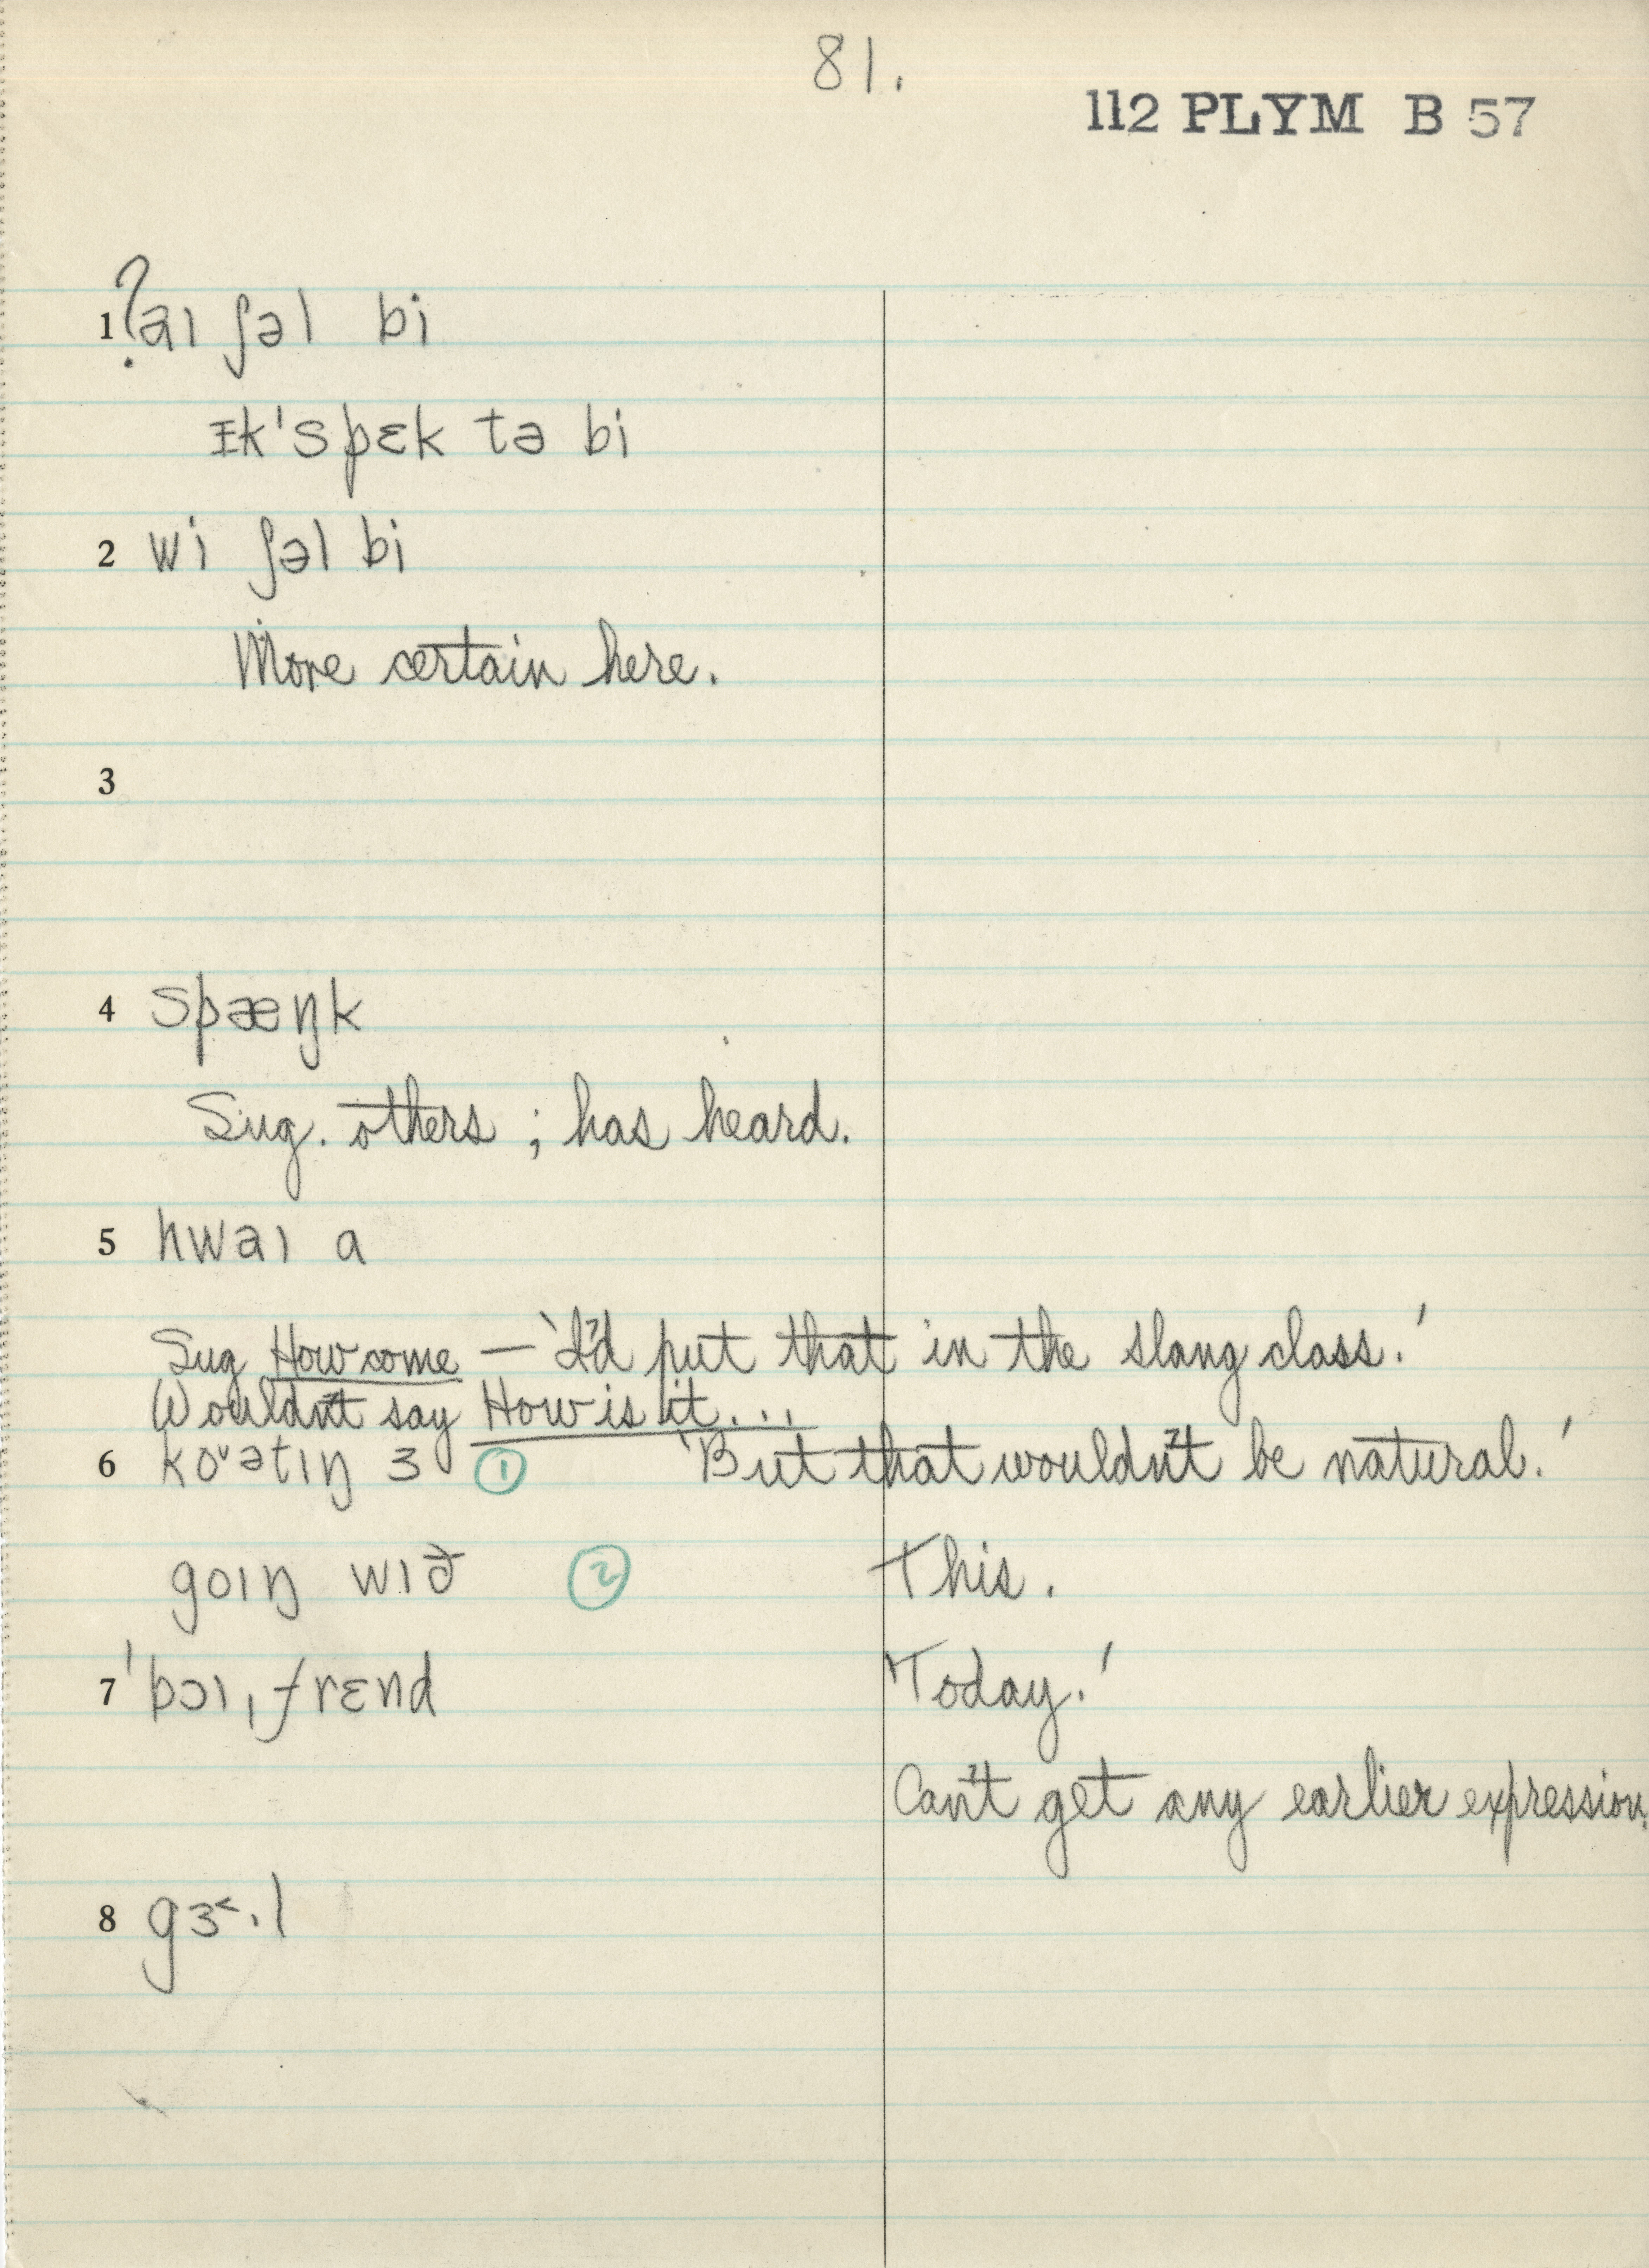 81.
112 PLYM B 57
1 ?aɪ ʃəl bi
ɪk'spɛk tə bi
2 wi ʃəl bi
More certain here.
3
4 spæŋk
Sug. others ; has heard.
5 hwaɪ a
Sug How come — 'I'd put that in the slang class.'
Wouldn't say How is it...
6 koᵛətɪŋ ɜ ① 'But that wouldn't be natural.'
goɪŋ wɪð ② This.
7 'bɔɪˌfrɛnd 'Today.'
Can't get any earlier expression.
8 gɜ˂·l